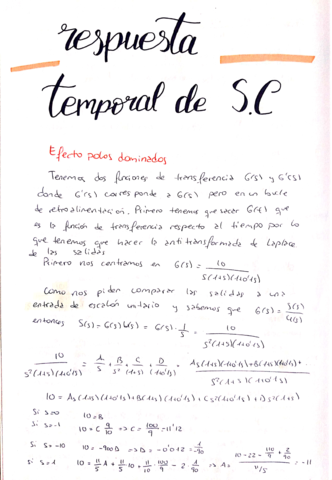 respuesta
temporal de S.C
Efecto polos dominados
Tenemos dos funciones de transferencia G(s) y G'(s)
donde G'(s) corresponde a G(s) pero en un bucle
de retroalimentación. Primero tenemos que hacer G(t) que
es la función de transferencia respecto al tiempo por lo
que tenemos que hacer la antitransformada de Laplace
de las salidas
Primero nos centramos en G(s) = 10 / s(1+s)(1+0'1s)
Como nos piden comparar las salidas a una
entrada de escalón unitario y sabemos que G(s) = S(s)/U(s)
entonces S(s) = G(s)U(s) = G(s)·1/s = 10 / s²(1+s)(1+0'1s)
10 / s²(1+s)(1+0'1s) = A/s + B/s² + C/(1+s) + D/(1+0'1s) = As(1+s)(1+0'1s)+B(1+s)(1+0'1s)+ / s²(1+s)(1+0'1s)
10 = As(1+s)(1+0'1s)+B(1+s)(1+0'1s)+Cs²(1+0'1s)+Ds²(1+s)
Si s=0 10=B
Si s=-1 10 = C 9/10 => C = 100/9 = 11'12
Si s=-10 10 = -900D => D = -0'012 = -1/90
Si s=1